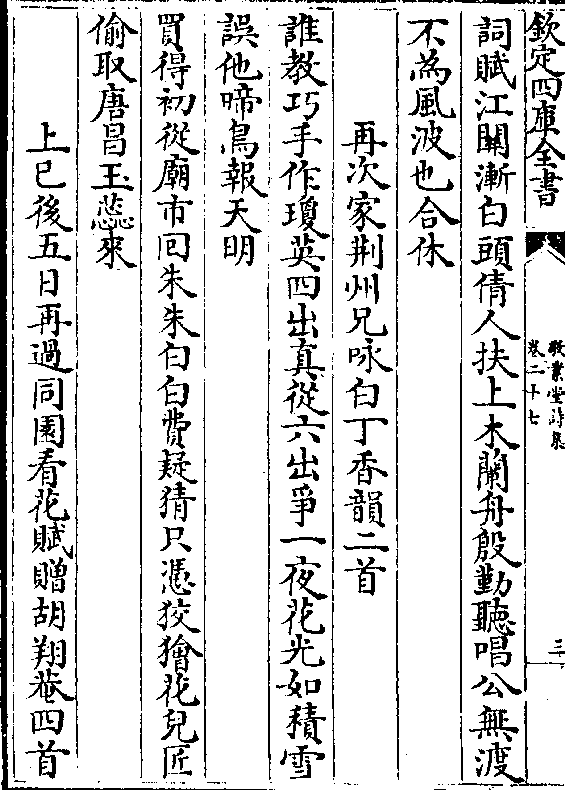 欽定四庫全書
敬業堂詩集
卷二十七
三
詞賦江關漸白頭倩人扶上木蘭舟殷勤聽唱公無渡
不為風波也合休
再次家荆州兄咏白丁香韻二首
誰教巧手作瓊英四出真從六出爭一夜花光如積雪
誤他啼鳥報天明
買得初從廟市回朱朱白白費疑猜只憑狡獪花兒匠
偷取唐昌玉蕊來
上巳後五日再過同園看花賦贈胡翔菴四首